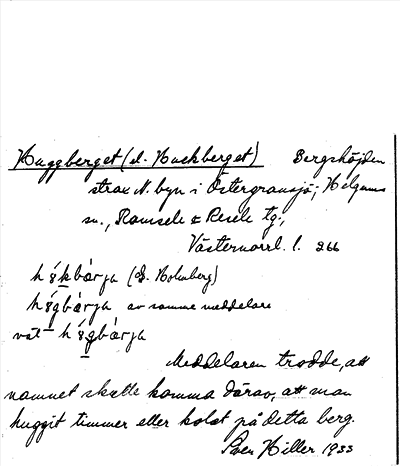 Huggberget (el. Hackberget) Bergshöjden
strax N. byn i Östergransjö; Helgums
sn., Ramsele & Resele tg.,
Västernorrl. l. 266
(E. Holmberg)
av samme meddelare
Meddelaren trodde, att
namnet skulle komma därav, att man
huggit timmer eller kolat på detta berg.
Hiller 1933